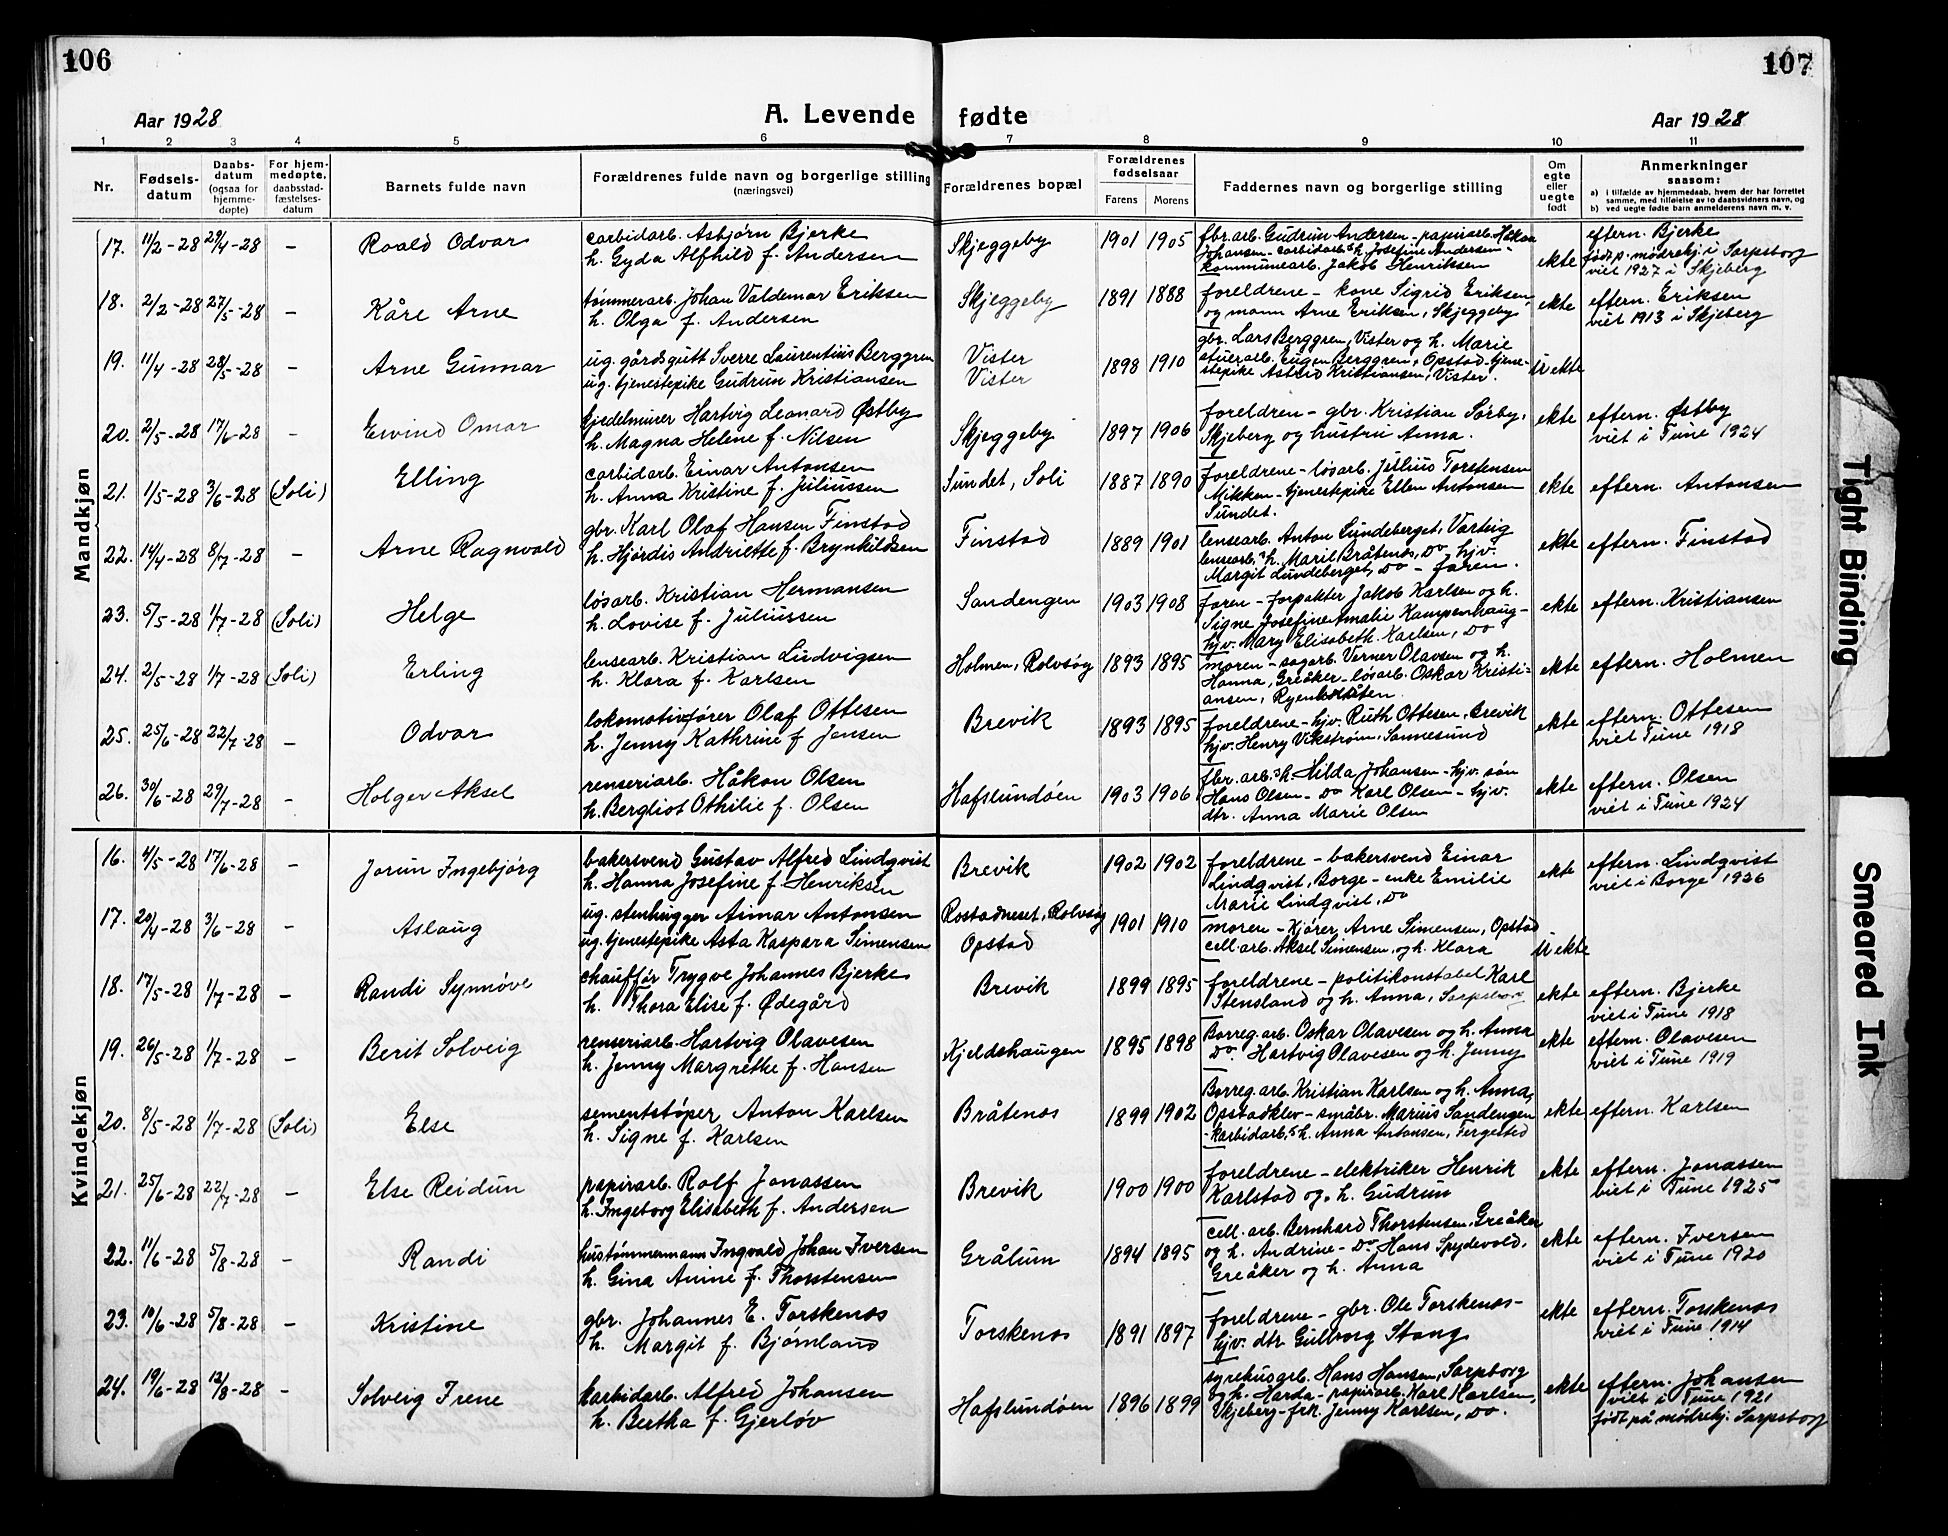 106
107
Aar 1928
A. Levende fødte
Aar 1928
1 2 3 4 5 6 7 8 9 10 11
Nr.
Fødsels-
datum
Daabs-
datum
(ogsaa for
hjemme-
døpte)
For hjem-
medøpte,
daabsstad-
fæstelses-
datum
Barnets fulde navn
Forældrenes fulde navn og borgerlige stilling
(næringsvei)
Forældrenes bopæl
Forældrenes
fødselsaar
Farens Morens
Faddernes navn og borgerlige stilling
Om
egte
eller
uegte
født
Anmerkninger
saasom:
a) i tilfælde av hjemmedaab, hvem der har forrettet
samme, med tilføielse av to daabsvidners navn, og
b) ved uegte fødte barn anmelderens navn m. v.
Mandkjøn
17. 11/2-28 29/4-28 - Roald Odvar
carbidarb. Asbjørn Bjerke
h. Gyda Alfhild f. Andersen
Skjeggeby 1901 1905
fbr.arb. Gudrun Andersen - papirarb. Håkon
Johansen - carbidarb.s h. Josefine Andersen -
kommunearb. Jakob Henriksen
ekte
eftern. Bjerke
født p. mødrehj. i Sarpsborg
viet 1927 i Skjeberg
18. 2/2-28 27/5-28 - Kåre Arne
tømmerarb. Johan Valdemar Eriksen
h. Olga f. Andersen
Skjeggeby 1891 1888
foreldrene - kone Sigrid Eriksen
og mann Arne Eriksen, Skjeggeby
ekte
eftern. Eriksen
viet 1913 i Skjeberg
19. 11/4-28 28/5-28 - Arne Gunnar
ug. gårdsgutt Sverre Laurentius Berggren
ug. tjenestepike Gudrun Kristiansen
Vister
Vister
1898 1910
gbr. Lars Berggren, Vister og h. Marie
stuerarb. Eugen Berggren, Opstad - tjene-
stepike Astrid Kristiansen, Vister.
uekte
20. 2/5-28 17/6-28 - Eivind Omar
kjedelmurer Hartvig Leonard Østby
h. Magna Helene f. Nilsen
Skjeggeby 1897 1906
foreldren - gbr. Kristian Sørby,
Skjeberg og hustru Anna.
ekte
eftern. Østby
viet i Tune 1924
21. 1/5-28 3/6-28 (Soli) Elling
carbidarb. Einar Antonsen
h. Anna Kristine f. Juliussen
Sundet, Soli 1887 1890
foreldrene - løsarb. Julius Torstensen
Mikken - tjenestepike Ellen Antonsen
Sundet.
ekte
eftern. Antonsen
22. 14/4-28 8/7-28 - Arne Ragnvald
gbr. Karl Olaf Hansen Finstad
h. Hjørdis Andriette f. Brynhildsen
Finstad 1889 1901
lensearb. Anton Lundeberget, Varteig
lensearb.s h. Maril Bråtenås, Do - hjv.
Margit Lundeberget, Do - faren.
ekte
eftern. Finstad
23. 5/5-28 1/7-28 (Soli) Helge
løsarb. Kristian Hermansen
h. Lovise f. Juliussen
Sandengen 1903 1908
faren - forpakter Jakob Karlsen og h.
Signe Josefine Amalie Kampenhaug -
hjv. Mary Elisabeth Karlsen, Do
ekte
eftern. Kristiansen
24. 2/5-28 1/7-28 (Soli) Erling
lensearb. Kristian Ludvigsen
h. Klara f. Karlsen
Holmen, Rolvsøy 1893 1895
moren - sagarb. Verner Olavsen og h.
Hanna, Greåker - løsarb. Oskar Kristi-
ansen,
ekte
eftern. Holmen
25. 25/6-28 22/7-28 - Odvar
lokomotivfører Olaf Ottesen
h. Jenny Kathrine f. Jensen
Brevik 1893 1895
foreldrene - hjv. Ruth Ottesen, Brevik
hjv. Henry Vikstrøm, Sannesund
ekte
eftern. Ottesen
viet Tune 1918
26. 30/6-28 29/7-28 - Holger Aksel
renseriarb. Håkon Olsen
h. Bergliot Othilie f. Olsen
Hafslundøen 1903 1906
fbr. arb.s h. Hilda Johansen - hjv. søn
Hans Olsen - Do Karl Olsen - hjv.
dtr. Anna Marie Olsen
ekte
eftern. Olsen
viet i Tune 1924
Kvindekjøn
16. 4/5-28 17/6-28 - Jorun Ingebjørg
bakersvend Gustav Alfred Lindqvist
h. Hanna Josefine f. Henriksen
Brevik 1902 1902
foreldrene - bakersvend Einar
Lindqvist, Borge - enke Emilie
Marie Lindqvist, Do
ekte
eftern. Lindqvist
viet i Borge 1926
17. 20/4-28 3/6-28 - Aslaug
ug. stenhugger Aimar Antonsen
ug. tjenestepike Asta Kaspara Simensen
Rostadneset, Rolvsøy
Opstad
1901 1910
moren - Kjører Arne Simensen, Opstad
cell. arb. Aksel Simensen, og h. Klara
uekte
18. 17/5-28 1/7-28 - Randi Synnøve
chauffør Trygve Johannes Bjerke
h. Thora Elise f. Ødegård
Brevik 1899 1895
foreldrene - politikonstabel Karl
Stensland og h. Anna, Sarpsborg
ekte
eftern. Bjerke
viet i Tune 1918
19. 26/5-28 1/7-28 - Berit Solveig
renseriarb. Hartvig Olavesen
h. Jenny Margrethe f. Hansen
Kjeldshaugen 1895 1898
Borreg. arb. Oskar Olavesen og h. Anna
Do. Hartvig Olavesen og h. Jenny
ekte
eftern. Olavesen
viet i Tune 1919
20. 8/5-28 1/7-28 (Soli) Else
sementstøper Anton Karlsen
h. Signe f. Karlsen
Bråtenås 1899 1902
Borreg. arb. Kristian Karlsen og h. Anna,
Opstadklev - småbr. Marius Sandengen
- karbidarb.s h. Anna Antonsen, Fergested
ekte
eftern. Karlsen
21. 25/6-28 22/7-28 - Else Reidun
papirarb. Rolf Jonassen
h. Ingeborg Elisabeth f. Andersen
Brevik 1900 1900
foreldrene - elektriker Henrik
Karlstad og h. Gudrun
ekte
eftern. Jonassen
viet i Tune 1925
22. 11/6-28 5/8-28 - Randi
hustømmermann Ingvald Johan Iversen
h. Gina Anine f. Thorstensen
Grålum 1894 1895
cell. arb. Bernhard Thorstensen, Greåker
og h. Andrine - Do Hans Spydevold,
Greåker og h. Anna
ekte
eftern. Iversen
viet i Tune 1920
23. 10/6-28 5/8-28 - Kristine
gbr. Johannes E. Torskenæs
h. Margit f. Bjørnland
Torskenæs 1891 1897
foreldrene - gbr. Ole Torskenæs -
hjv. dtr. Gulborg Stang
ekte
eftern. Torskenæs
viet i Tune 1914
24. 19/6-28 12/8-28 - Solveig Irene
karbidarb. Alfred Johansen
h. Bertha f. Gjerløv
Hafslundøen 1896 1899
syrehusarb. Hans Hansen, Sarpsborg
og h. Harda - papirarb. Karl Karlsen,
Skjeberg - frk. Jenny Karlsen, Do.
ekte
eftern. Johansen
viet i Tune 1921
født på mødrehj. Sarpsborg
Tight Binding
Smeared Ink